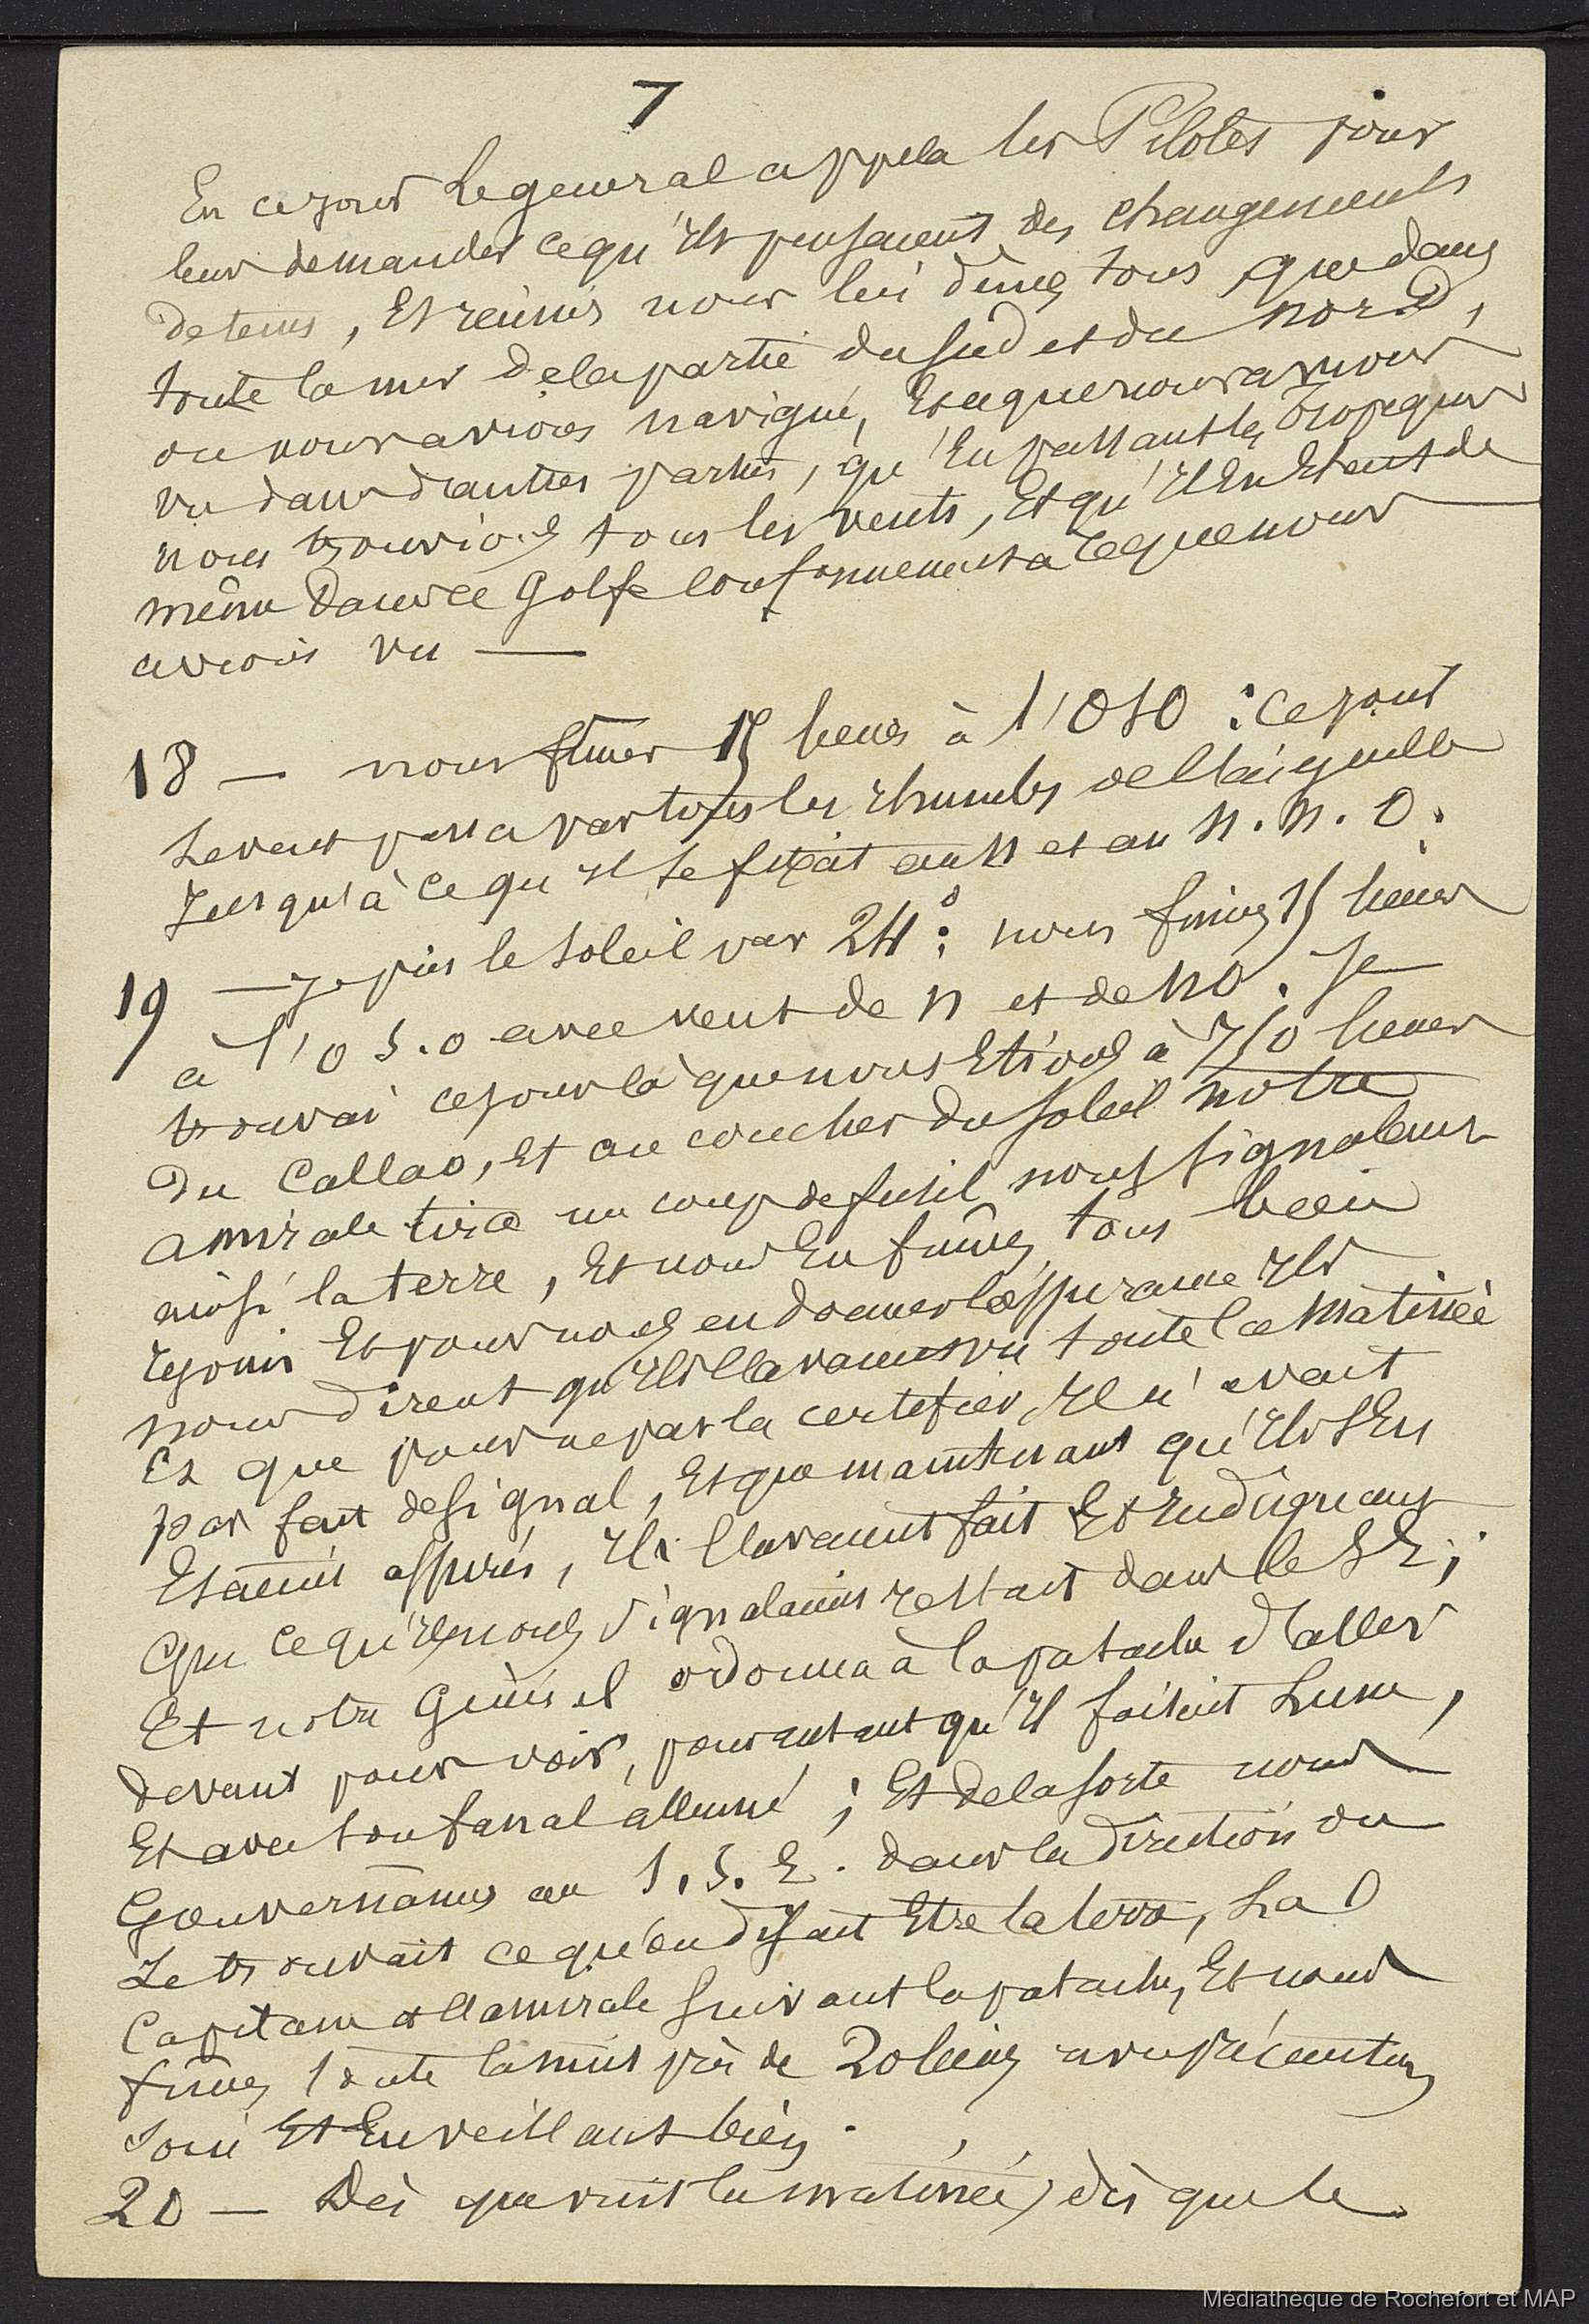 7
En ce jour Le general appela les Pilotes pour
leur demander ce qu'Ils pensaient des changements
de tems, Et reunis nous lui dimes tous que dans
toute la mer de la partie du sud et du nord,
ou nous avions navigué, Et a que nous avions
vu dans d'autres parties, qu'En passant les Tropiques
nous trouvions tous les vents, Et qu'Il En Etait de
même dans ce Golfe conformement a ce que nous
avions vu —
18 — nous fimes 15 lieues à l'OSO : ce jour
Le vent passa par tous les rhumbs de l'aiguille
Jusqu'à ce qu'il se fixat au N et au N. N. O.
19 — je pris le soleil par 24° : nous fimes 15 lieues
à l'O S.O avec vent de N et de NO. Je
trouvai ce jour là que nous Etions à 750 lieues
Du Callao, Et au coucher du soleil notre
amirale tira un coup de fusil nous signalant
ainsi la terre, Et nous En fumes tous bien
rejouis Et pour nous en donner l'assurance Ils
nous dirent qu'Ils l'avaient vu toute la matinée
Et que pour ne pas la certefier, Il n'avait
pas fait de signal, Et que maintenant qu'Ils S'En
Etaient assurés, Ils l'avaient fait Et Indiquant
Que ce qu'Ils nous signalaient restait dans le S E;
Et notre Général ordonna à la patache d'aller
devant pour voir, pour autant qu'Il faisait Lune,
Et avec son fanal allumé ; Et de la sorte nous
Gouvernames au S. S. E. dans la direction ou
Se trouvait ce qu'on disait Etre la terre, La
Capitane et l'amirale suivant la patache, Et nous
fimes toute la nuit près de 20 lieues avec
soin Et En veillant bien.
20 — Dès que vint la matinée, dès que le
Médiathèque de Rochefort et MAP